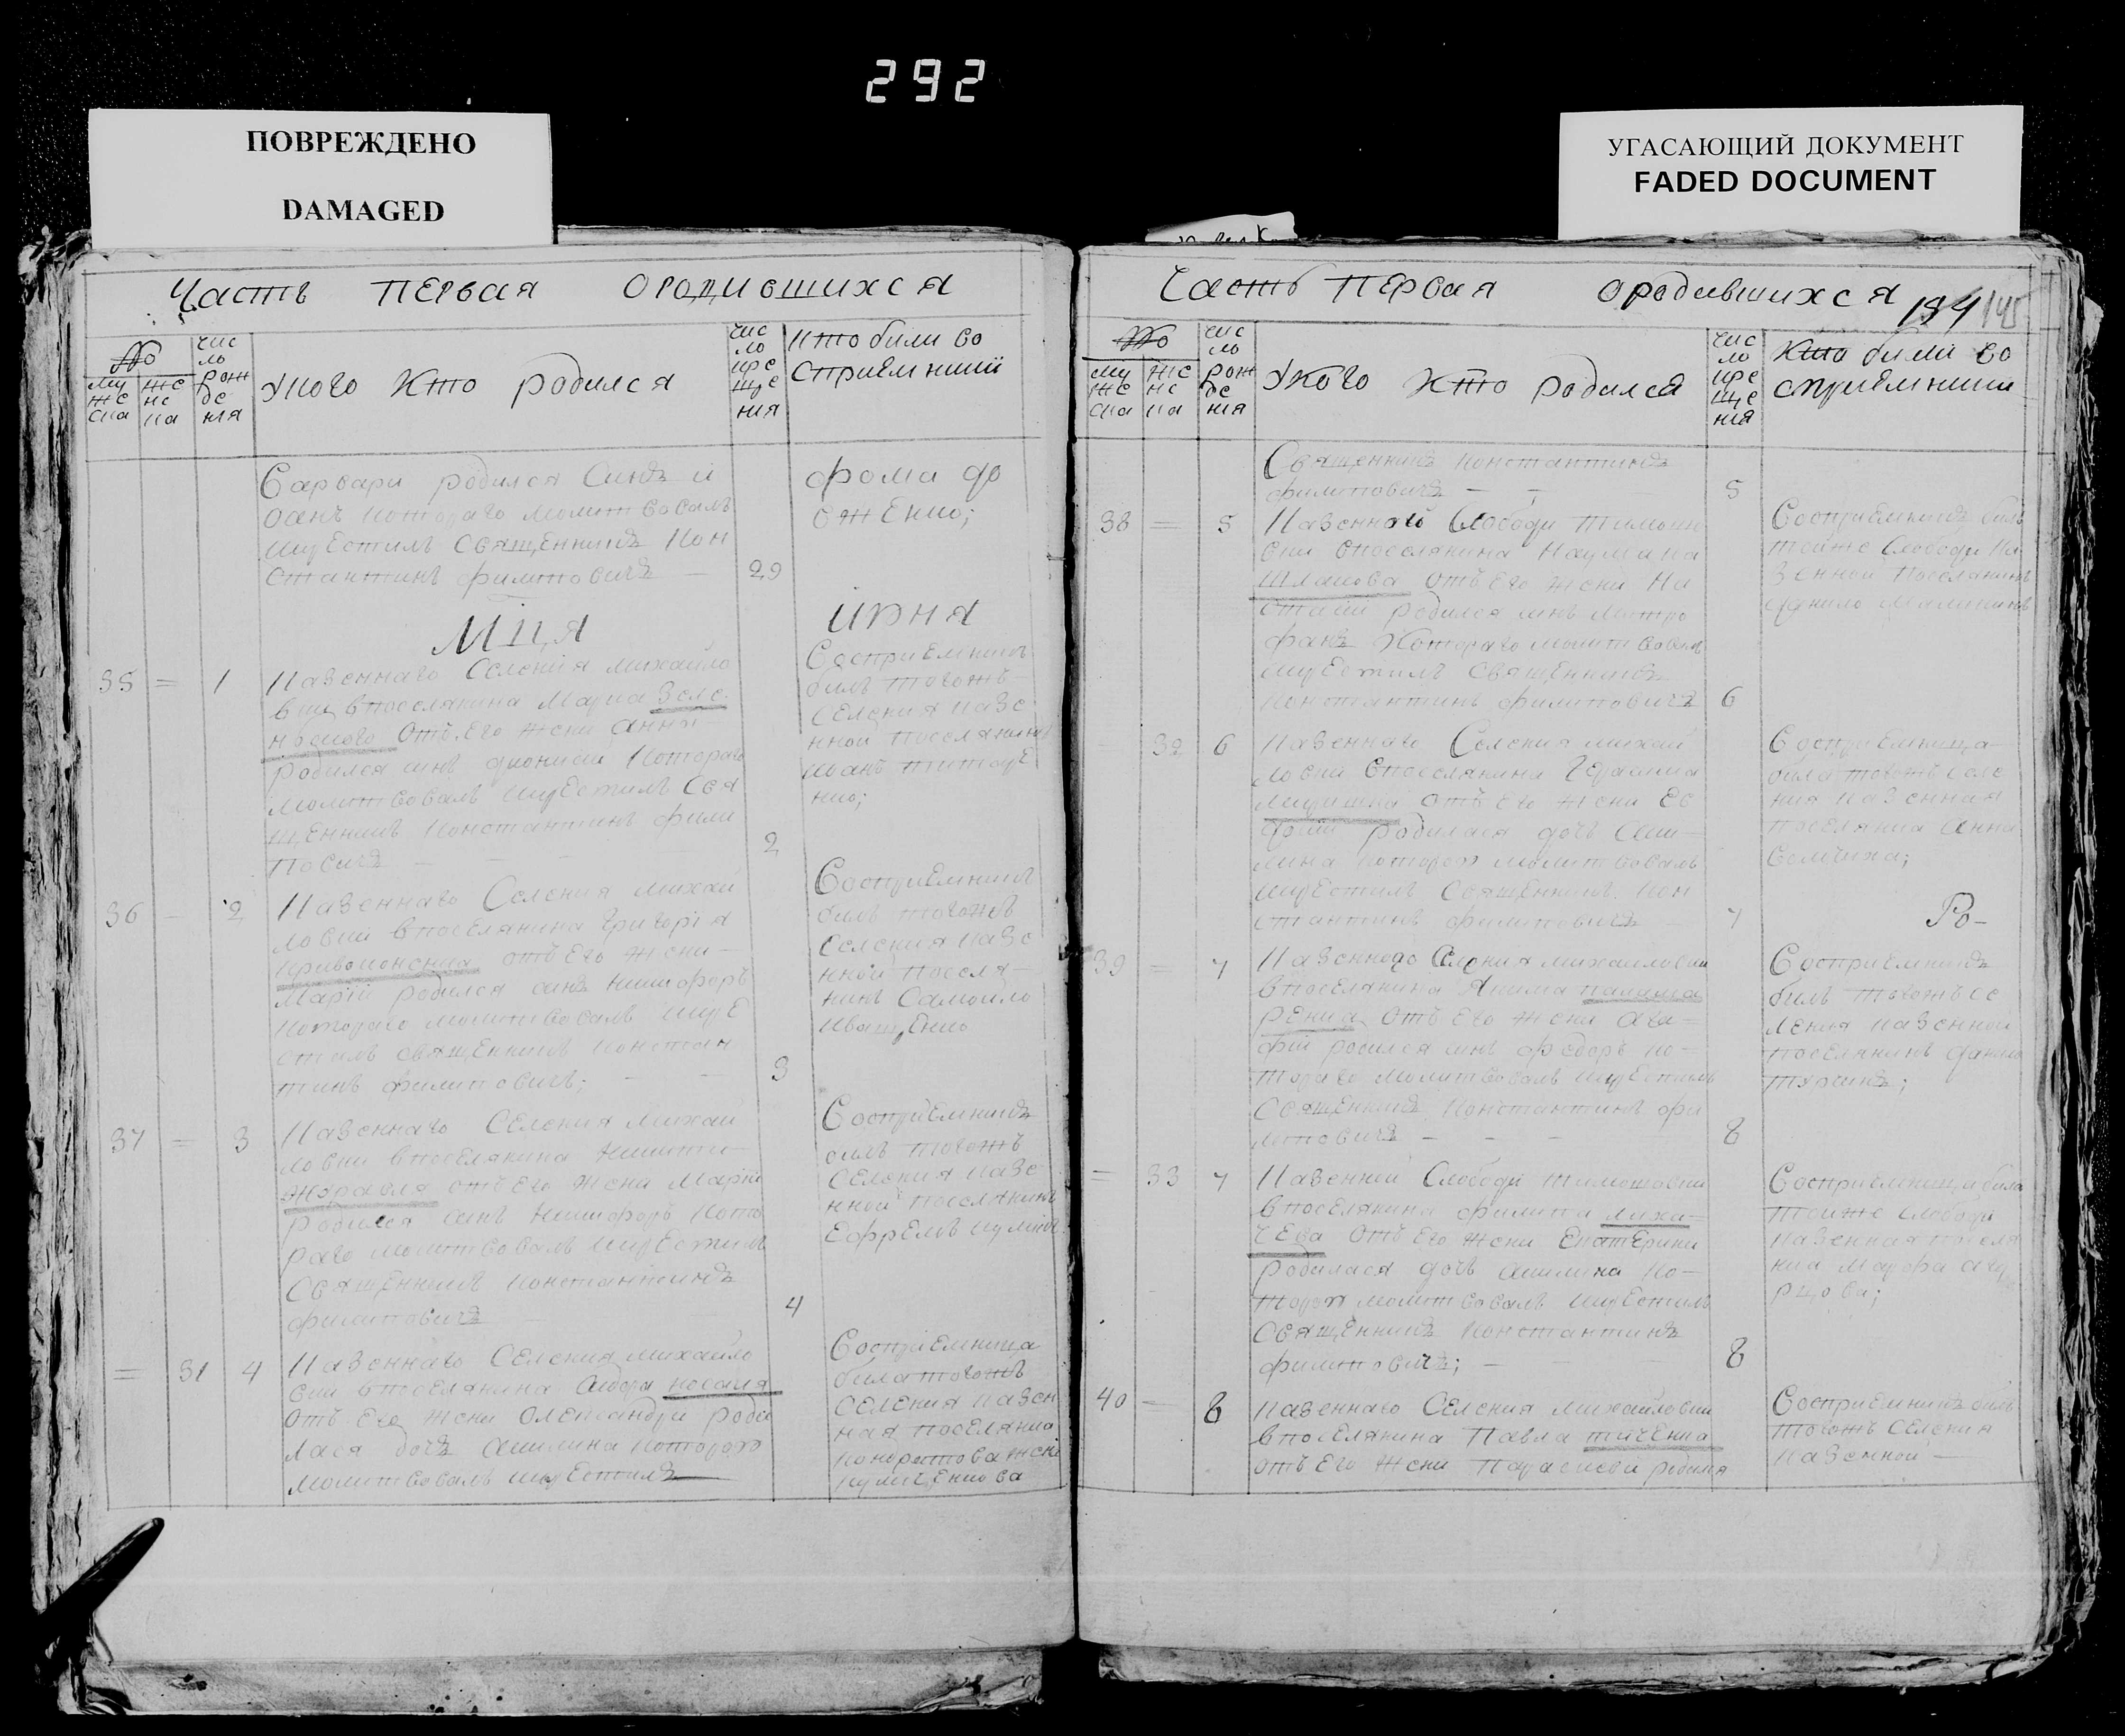 292
ПОВРЕЖДЕНО
DAMAGED
УГАСАЮЩИЙ ДОКУМЕНТ
FADED DOCUMENT
Часть первая ородившихся
№
му
жс
ска
жс
нс
ка
чис
ло
рож
де
ния
укого кто родился
чис
ло
кре
ще
ния
кто били во
сприемники
Варвари родился Синъ и
оанъ котораго молитвовалъ
икрестилъ священникъ кон
стантинъ филиповичъ —
29
фома до
вженко;
Мця
июня
35 = 1
казеннаго Селения михайло
вки впоселянина Марка Зеле
нского отъ его жени анни
родился синъ дионисий котораго
молитвовалъ икрестилъ свя
щенникъ константинъ фили
повичъ —
2
Восприемникъ
билъ тогожъ
Селения казе
нной поселянинъ
иванъ титаре
нко;
36 - 2
казеннаго Селения михай
ловки впоселянина григория
кривоконская отъ его жени
Марий родился синъ никифоръ
котораго молитвовалъ икре
стилъ священникъ констан
тинъ филиповичъ; —
3
Восприемникъ
билъ тогожъ
Селения казе
нной поселя
нинъ Самойло
иващенко
37 = 3
казеннаго Селения михай
ловки впоселянина никити
журавля отъ его жени Марий
родился синъ никифоръ кото
раго молитвовалъ икрестилъ
Священникъ константинъ
филиповичъ
4
Восприемникъ
билъ тогожъ
Селения казе
нной поселянинъ
Ефремъ
= 31 4
казеннаго Селения михайло
вки впоселянина Сидора носаля
отъ его жени Олександри роди
лася дочъ акилина которою
молитвовалъ икрестилъ
Восприемница
била тогожъ
Селения казен
ная поселянка
жена
Часть первая ородившихся
194
№
му
жс
ска
жс
нс
ка
чис
ло
рож
де
ния
укого кто родился
чис
ло
кре
ще
ния
кто били во
сприемники
Священникъ константинъ
филиповичъ —
5
38 = 5
казенной Слободи тимош
вки впоселянина наума ка
шлакова отъ его жени на
стасии родился синъ митро
фанъ котораго молитвовалъ
икрестилъ священникъ
константинъ филиповичъ
6
Восприемникъ билъ
тейже Слободи ка
зенной поселянинъ
данило
32 6
казеннаго Селения михай
ловки впоселянина герасима
отъ его жени ев
докии родилася дочъ аки
лина которою молитвовалъ
икрестилъ священникъ кон
стантинъ филиповичъ
7
Восприемница
била тогожъ селе
ния казенная
поселянка анна
волчиха;
Ро-
39 = 7
казеннаго Селения михайловки
впоселянина Акима паламa
ренка отъ его жени ага
фии родился синъ федоръ ко
тораго молитвовалъ икрестилъ
Священникъ константинъ фи
липовичъ —
8
Восприемникъ
билъ тогожъ се
ления казенной
поселянинъ данило
турчинъ;
= 33 7
казенной Слободи тимошовки
впоселянина филипа лиха
чева отъ его жени Екатерини
родилася дочъ акилина ко
торою молитвовалъ икрестилъ
Священникъ константинъ
филиповичъ; —
8
Восприемница била
тейже Слободи
казенная поселя
нка Марфа
40 — 8
казеннаго Селения михайловки
впоселянина Павла ткченка
отъ его жени Параскеви родился
Восприемникъ билъ
тогожъ Селения
казенной —